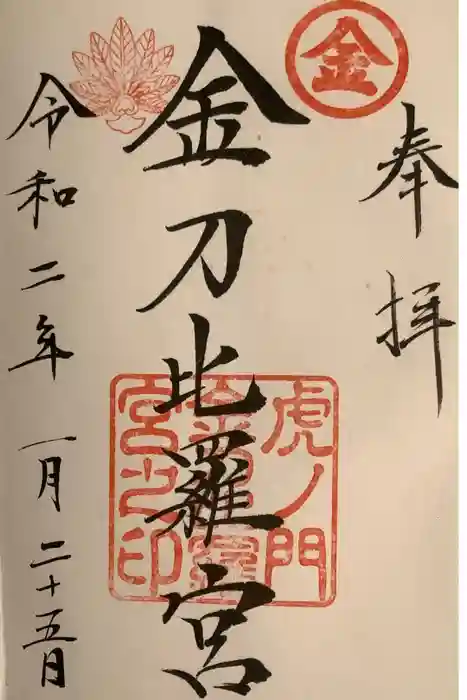 奉拝
金
金刀比羅宮
虎ノ門
金刀比羅
宮之印
令和二年一月二十五日